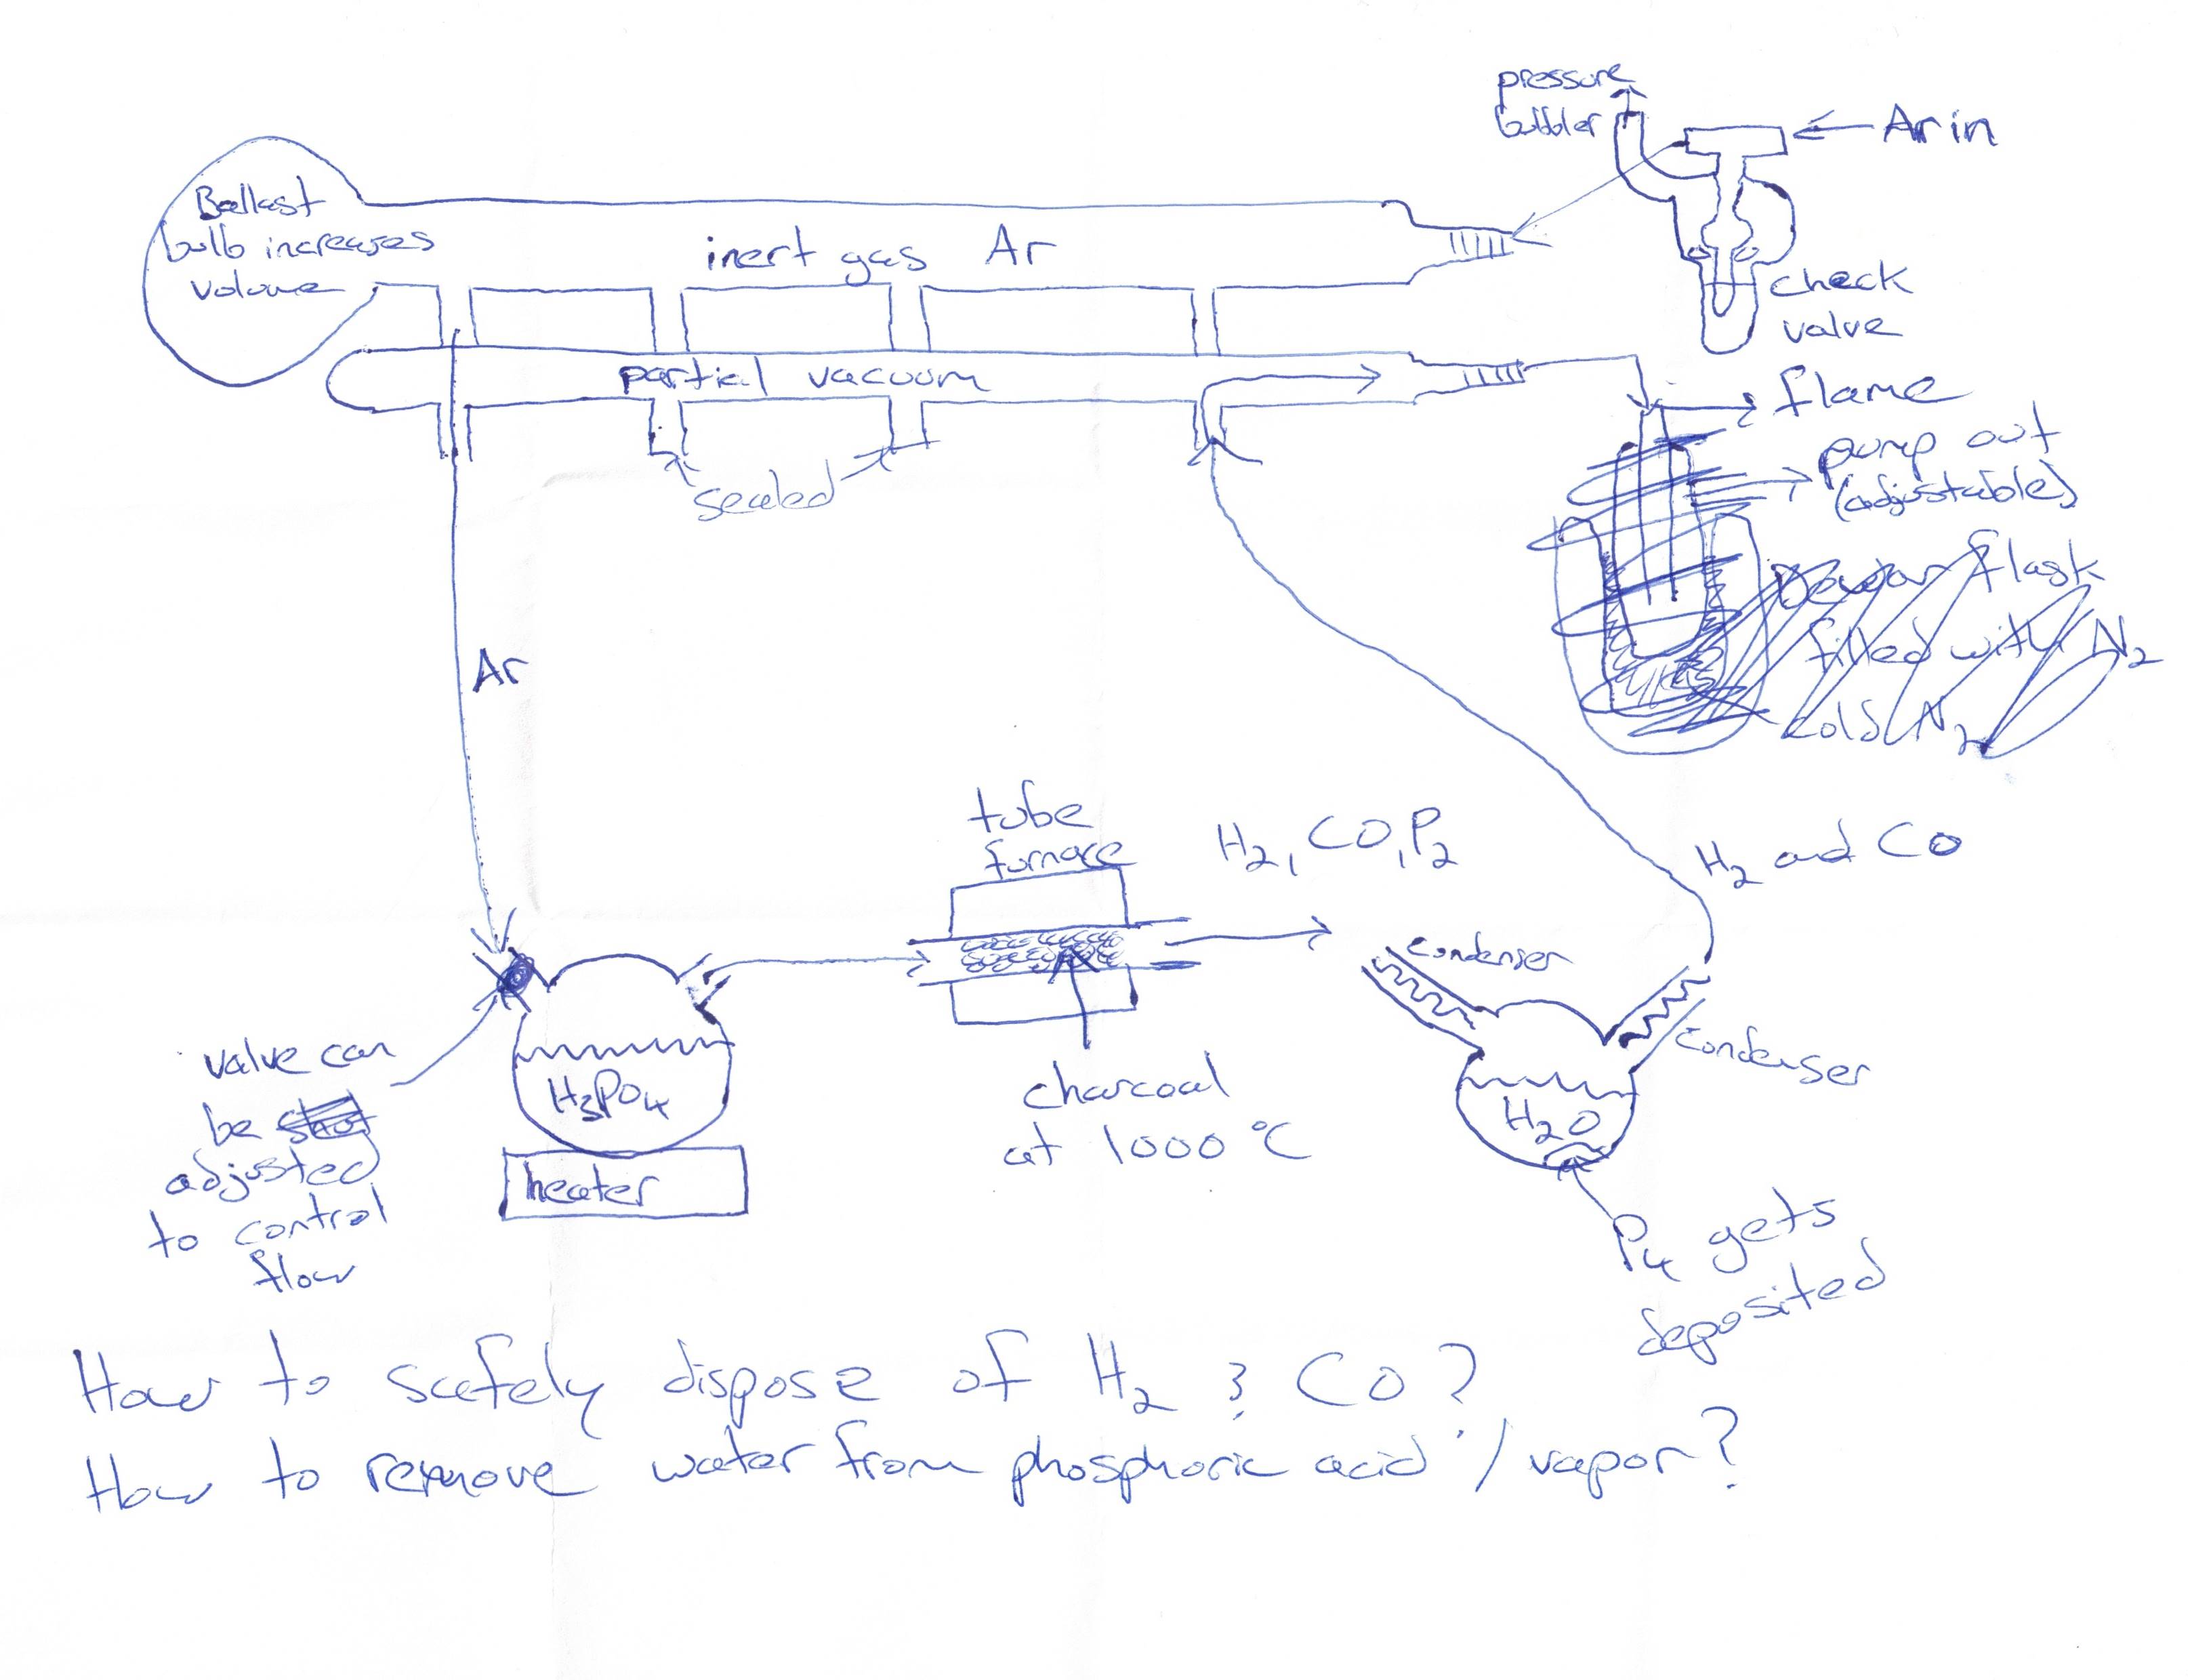 pressure
bubbler
Ar in
Ballast
bulb increases
volume
inert gas Ar
check
valve
partial vacuum
flame
pump out
(adjustable)
sealed
Dewar flask
filled with N2
cold N2
Ar
tube
furnace
H2, CO, P2
H2 and CO
condenser
condenser
valve can
be
adjusted
to control
flow
H3PO4
heater
charcoal
at 1000 °C
H2O
P4 gets
deposited
How to safely dispose of H2 & CO?
How to remove water from phosphoric acid / vapor?